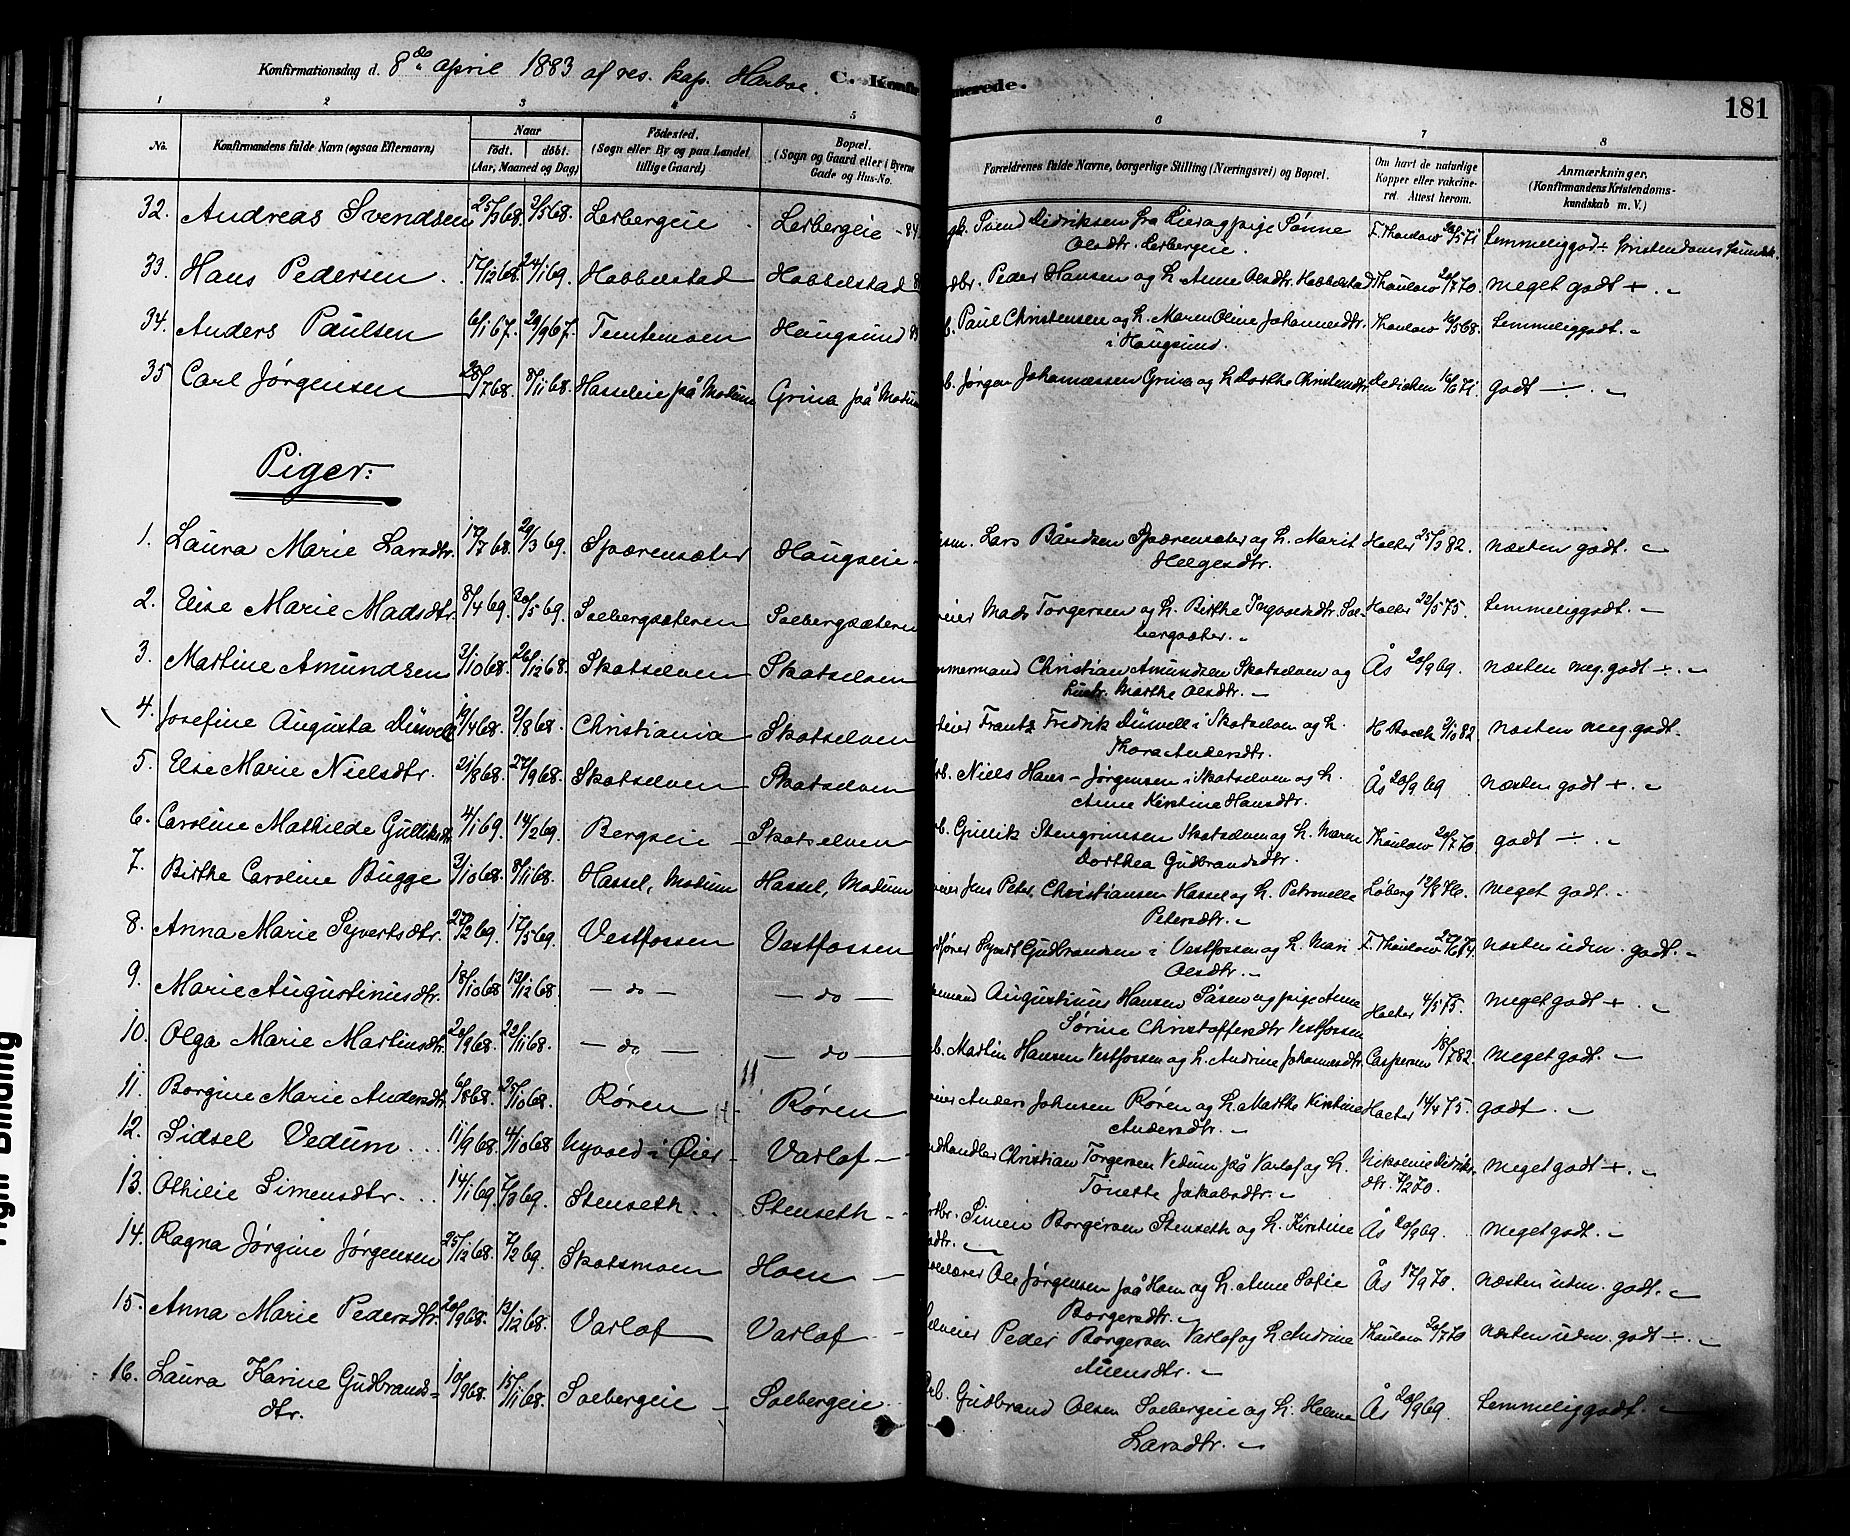 Konfirmationsdag d. 8de april 1883 af res. kap. Harboe. C. Konfir merede. 181
1 2 3 4 5 6 7 8
No. Konfirmandens fulde Navn (ogsaa Efternavn) Naar født. døbt. (Aar, Maaned og Dag) Fødested. (Sogn eller By og paa Landet tillige Gaard) Bopæl. (Sogn og Gaard eller i Byerne Gade og Hus-No. Forældrenes fulde Navne, borgerlige Stilling (Næringsvei) og Bopæl. Om havt de naturlige Kopper eller vakcineret. Attest herom. Anmærkninger. (Konfirmandens Kristendomskundskab m. V.)
32. Andreas Svendsen 25/3 68. 3/5 68. Lerbergeie Lerbergeie Svend Didriksen fra Lier og pige Sønne F. Thaulow /5 71 Temmeliggodt ÷ Kristendomskundsk.
Olsdtr. Lerbergeie.
33. Hans Pedersen 17/12 68. 24/1 69. Hobbelstad Hobbelstad Peder Hansen og h. Anne Olsdtr. Hobbelstad Thaulow 20/7 70. meget godt +
34. Anders Paulsen 6/1 67. 29/9 67. Temtemoen Haugsund Paul Christensen og h. Maren Oline Johannesdtr. Thaulow /5 68. Temmeliggodt.
i Haugsund.
35 Carl Jørgensen 28/7 68. 8/11 68. Hasseleie på Modum Grina på Modum Jørgen Johannessen Grina og h. Dorthe Christensdtr. Dedichen /6 71. godt ÷
Piger:
1. Laura Marie Larsdtr. 17/7 68. 29/3 69. Spærensæter Haugseie Lars Båndsen Spærensæter og h. Marit Holter 25/3 82. næsten godt.
Helgesdtr.
2. Elise Marie Madsdtr. 8/4 69. 30/5 69. Solbergsæteren Solbergsæteren Mads Torgersen og h. Birthe Ingvoldsdtr. Sol- Holter 22/5 75 Temmeliggodt.
bergsæter.
3. Martine Amundsen 3/10 68. 26/12 68. Skotselven Skotselven Christian Amundsen Skotselven og Ås 20/9 69. næsten meg. godt ÷
hustr. Marthe Olsdtr.
4. Josefine Augusta Düwell 19/4 68. 2/8 68. Christiania Skotselven Frantz Fredrik Düwell i Skotselven og h. H. Bock /10 82 næsten meg. godt.
Thora Andersdtr.
5. Else Marie Nielsdtr. 21/8 68. 27/9 68. Skotselven Skotselven Niels Hans-Jørgensen i Skotselven og h. Ås 20/9 69 næsten godt +
Anne Kirstine Hansdtr.
6. Caroline Mathilde Gulliksdtr. 4/1 69. 14/2 69. Bergseie Skotselven Gullik Stengrimsen Skotselven og h. Maren Thaulow 20/7 70. godt ÷
Dorthea Gudbrandsdtr.
7. Birthe Caroline Bugge 3/10 68. 8/11 68. Hassel, Modum Hassel, Modum Jens Peter Christiansen Hassel og h. Petronelle Løberg 12/8 76. meget godt.
Petersdtr.
8. Anna Marie Syvertsdtr. 27/2 69. 17/5 69. Vestfossen Vestfossen Syvert Gudbrandsen i Vestfossen og h. Mari F. Thaulow 27/6 74. næsten udm. godt.
Olsdtr.
9. Marie Augustinusdtr. 18/10 68 13/12 68. — do — — do — Augustinus Hansen Såsen og pige Anne Holter 4/5 75. meget godt +
Sørine Christoffersdtr Vestfossen
10. Olga Marie Martinsdtr. 20/9 68. 22/11 68. — do — — do — Martin Hansen Vestfossen og h. Andrine Johannesdtr. Caspersen 18/7 82. meget godt.
11. Borgine Marie Andersdtr. 6/8 68. 25/10 68. Røren Røren Anders Johnsen Røren og h. Marthe Kirstine Holter 14/4 75. godt.
Andersdtr.
12. Sidsel Vedum 11/9 68. 4/10 68 Nyvold i Øier Varlof Christian Torgersen Vedum på Varlof og h. Nikoline Didriks- meget godt +
Tonette Jakobsdtr. dtr. 7/2 70.
13. Othilie Simensdtr. 14/1 69. 7/3 69. Stenseth Stenseth Simen Borgersen Stenseth og h. Kirstine Ås 20/9 69. meget godt.
14. Ragna Jørgine Jørgensen 25/12 68. 7/2 69. Skotsmoen Hoen Ole Jørgensen på Hoen og h. Anne Sofie Ås 17/9 70. næsten udm. godt.
Borgersdtr.
15. Anna Marie Pedersdtr. 20/9 68. 13/12 68. Varlof Varlof Peder Borgersen Varlof og h. Andrine Thaulow 20/7 70 næsten udm. godt ÷
Auensdtr.
16. Laura Karine Gudbrands- 10/9 68. 15/11 68. Solbergeie Solbergeie Gudbrand Olsen Solbergeie og h. Helene Ås 20/9 69. Temmeliggodt.
dtr. Larsdtr.